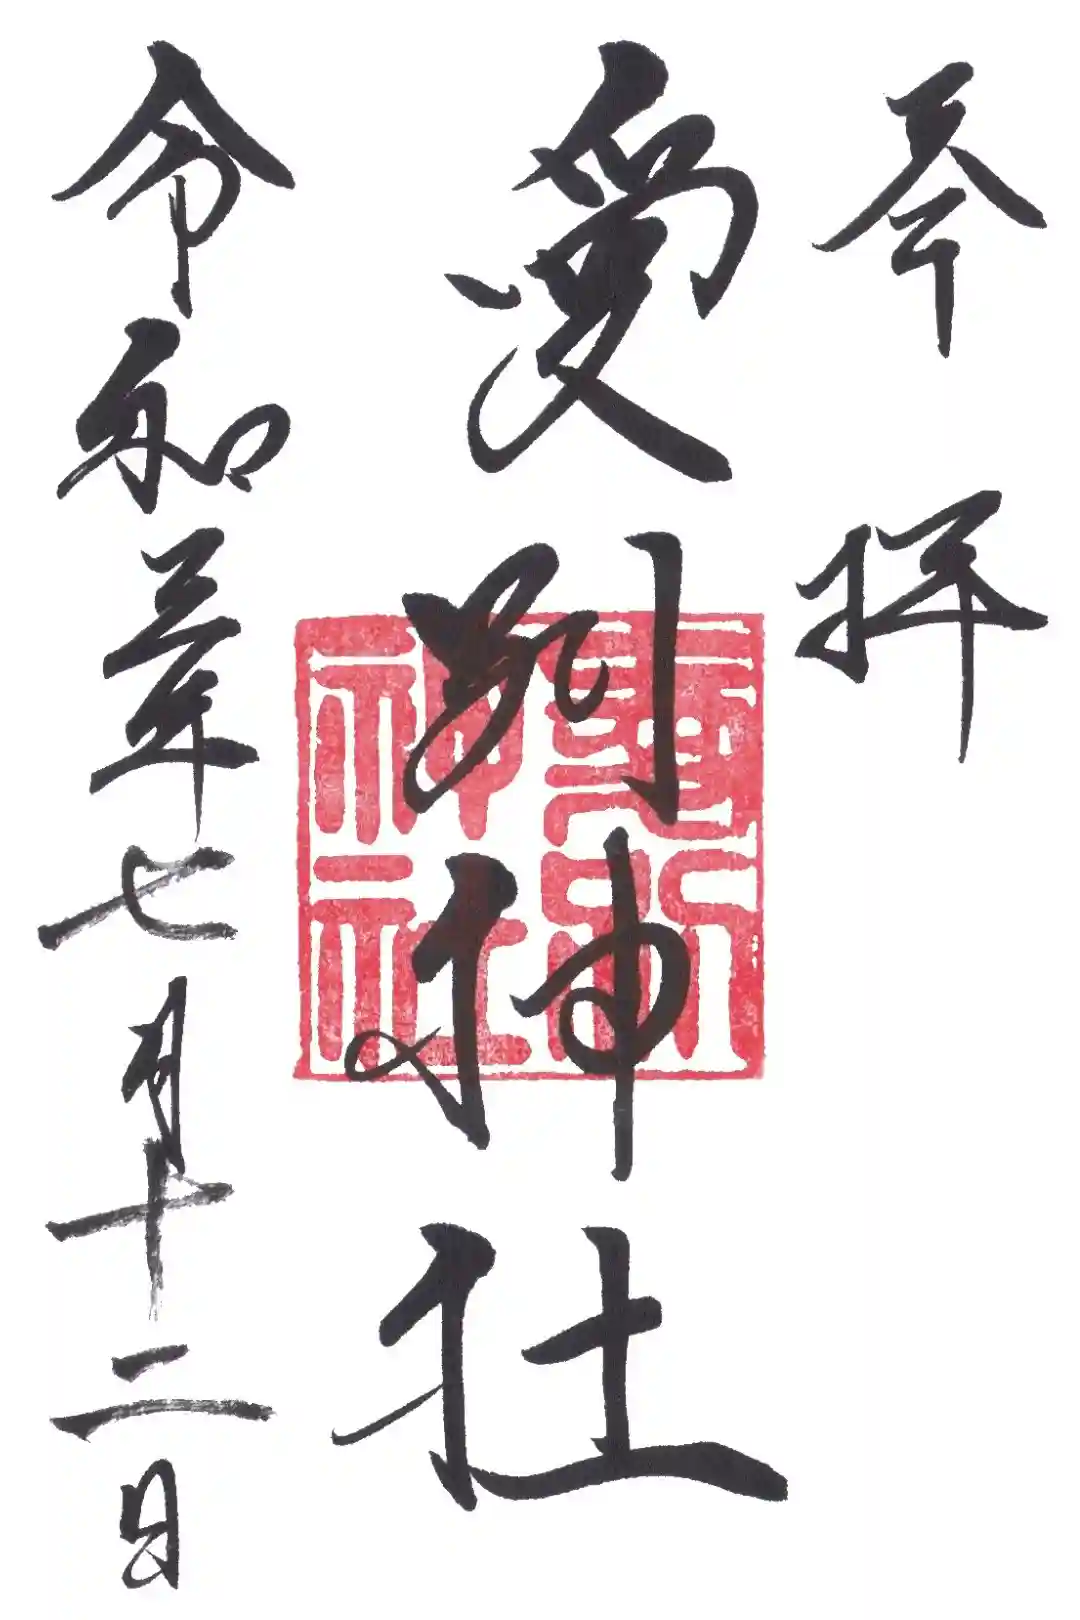 奉拝
愛別神社
愛別
神社
令和三年七月十二日